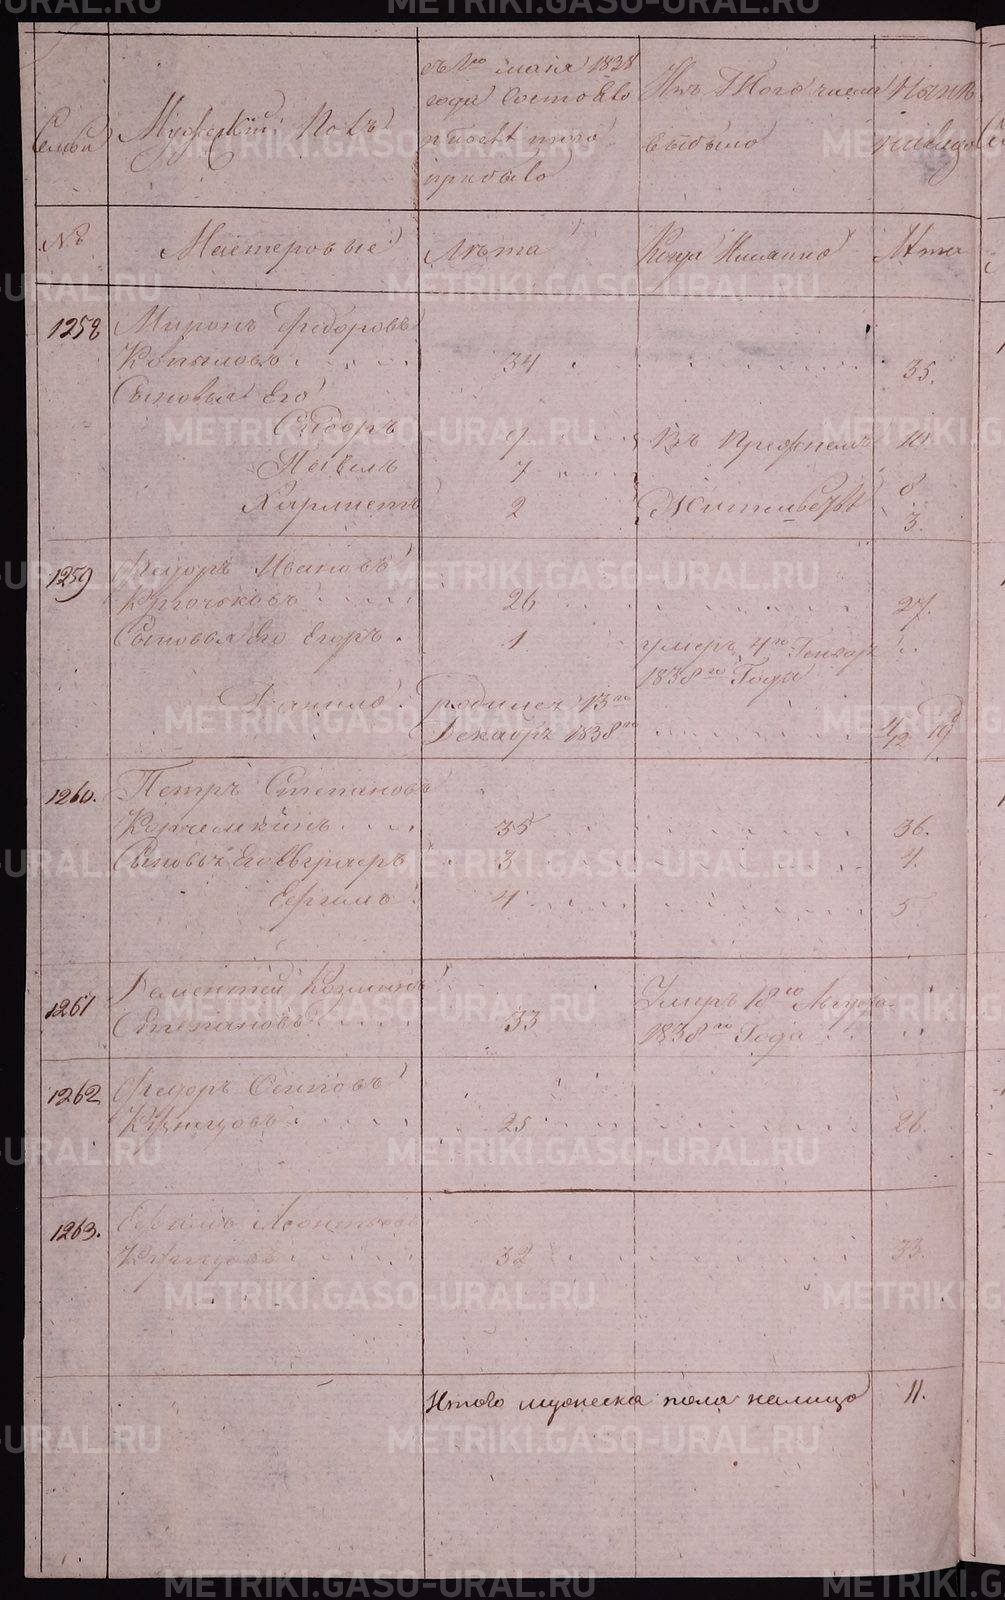 METRIKI.GASO-URAL.RU
Семьи
Мужескiй Полъ
съ 1го маия 1838
года состояло
и послѣ того
прибыло
Изъ Того числа
выбыло
Нынѣ
налицо
№
Мастеровые
Лѣта
Когда Имянно
Лѣта
1258 Миронъ Федоровъ
Копыловъ 34 35.
Сыновья Его
Сидоръ 9 Въ Прежнемъ 10.
Павелъ 7 8
Харлистъ 2 Жительствѣ 3.
1259 Федоръ Ивановъ
Крючковъ 26 27.
Сыновья Его Егоръ 1 умеръ 4го Генваря
1838го Года
Данило родился 13го
Декабря 1838го
1260. Петръ Степановъ
35 36.
Сыновья Его 3 4.
Ефимъ 4 5
1261 Дементей Козминъ
Степановъ 33 Умеръ 18го Августа
1838го Года
1262 Федоръ Осиповъ
Кузнецовъ 25 26.
1263. Ефимъ Леонтьевъ
32 33.
Итого мужеска пола налицо 11.